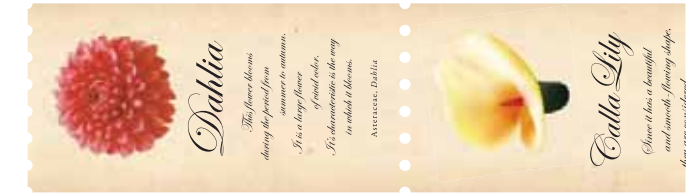 Dahlia
This flower blooms
during the period from
summer to autumn.
It is a large flower
of vivid color.
It's characteristic is the way
in which it blooms.
Asteraceae, Dahlia
Calla Lily
Since it has a beautiful
and smooth flowing shape,